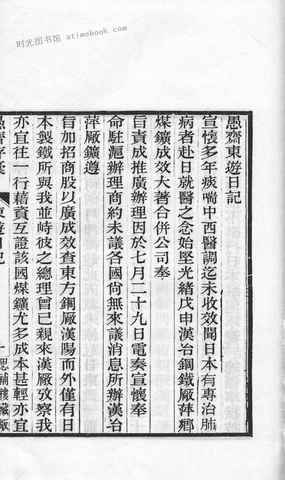 时光图书馆 atimobook.com
愚齋東遊日記
宣懷多年痰喘中西醫調迄未收效聞日本有專治肺
病者赴日就醫之念始堅光緒戊申漢冶鋼鐵厰萍鄉
煤鑛成效大著合併公司奉
旨責成推廣辦理因於七月二十九日電奏宣懷奉
命駐滬辦理商約未議各國尙無來議消息所辦漢冶
萍厰鑛遵
旨加招商股以廣成效查東方鋼厰漢陽而外僅有日
本製鐵所與我並峙彼之總理曾已親來漢厰攷察我
亦宜往一行藉資互證該國煤鑛尤多成本甚輕亦宜
愚齋存稾
東遊日記
一
思補樓藏版